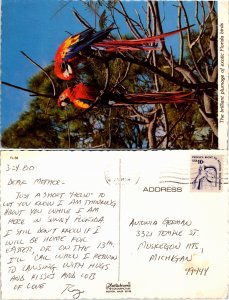 The brilliant plumage of exotic Florida birds
3-24-80
DEAR MOTHER-
JUST A SHORT "HELLO" TO
LET YOU KNOW I AM THINKING
ABOUT YOU WHILE I AM
HERE IN SUNNY FLORIDA.
I STILL DON'T KNOW IF I
WILL BE HOME FOR
EASTER OR ON THE 13TH.
I'LL CALL WHEN I RETURN
TO LANSING WITH HUGS
AND KISSES AND LOTS
OF LOVE
ADDRESS
ANTONIA GERMAN
3321 TEMPLE ST.
MUSKEGON HTS,
MICHIGAN
49444